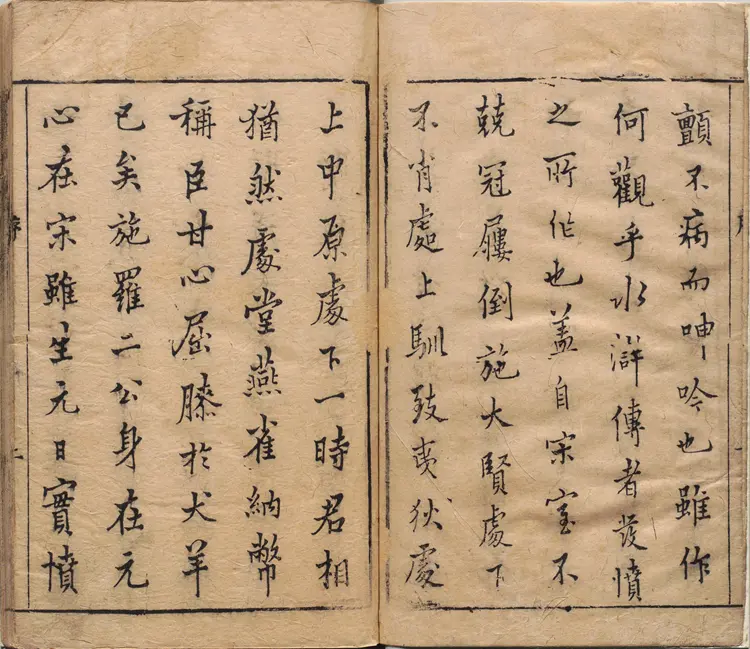 顫不病而呻吟也雖作
何觀乎水滸傳者發憤
之所作也盖自宋室不
兢冠屨倒施大賢處下
不肖處上馴致夷狄處
上中原處下一時君相
猶然處堂燕雀納幣
稱臣甘心屈膝於犬羊
已矣施羅二公身在元
心在宋雖生元日實憤